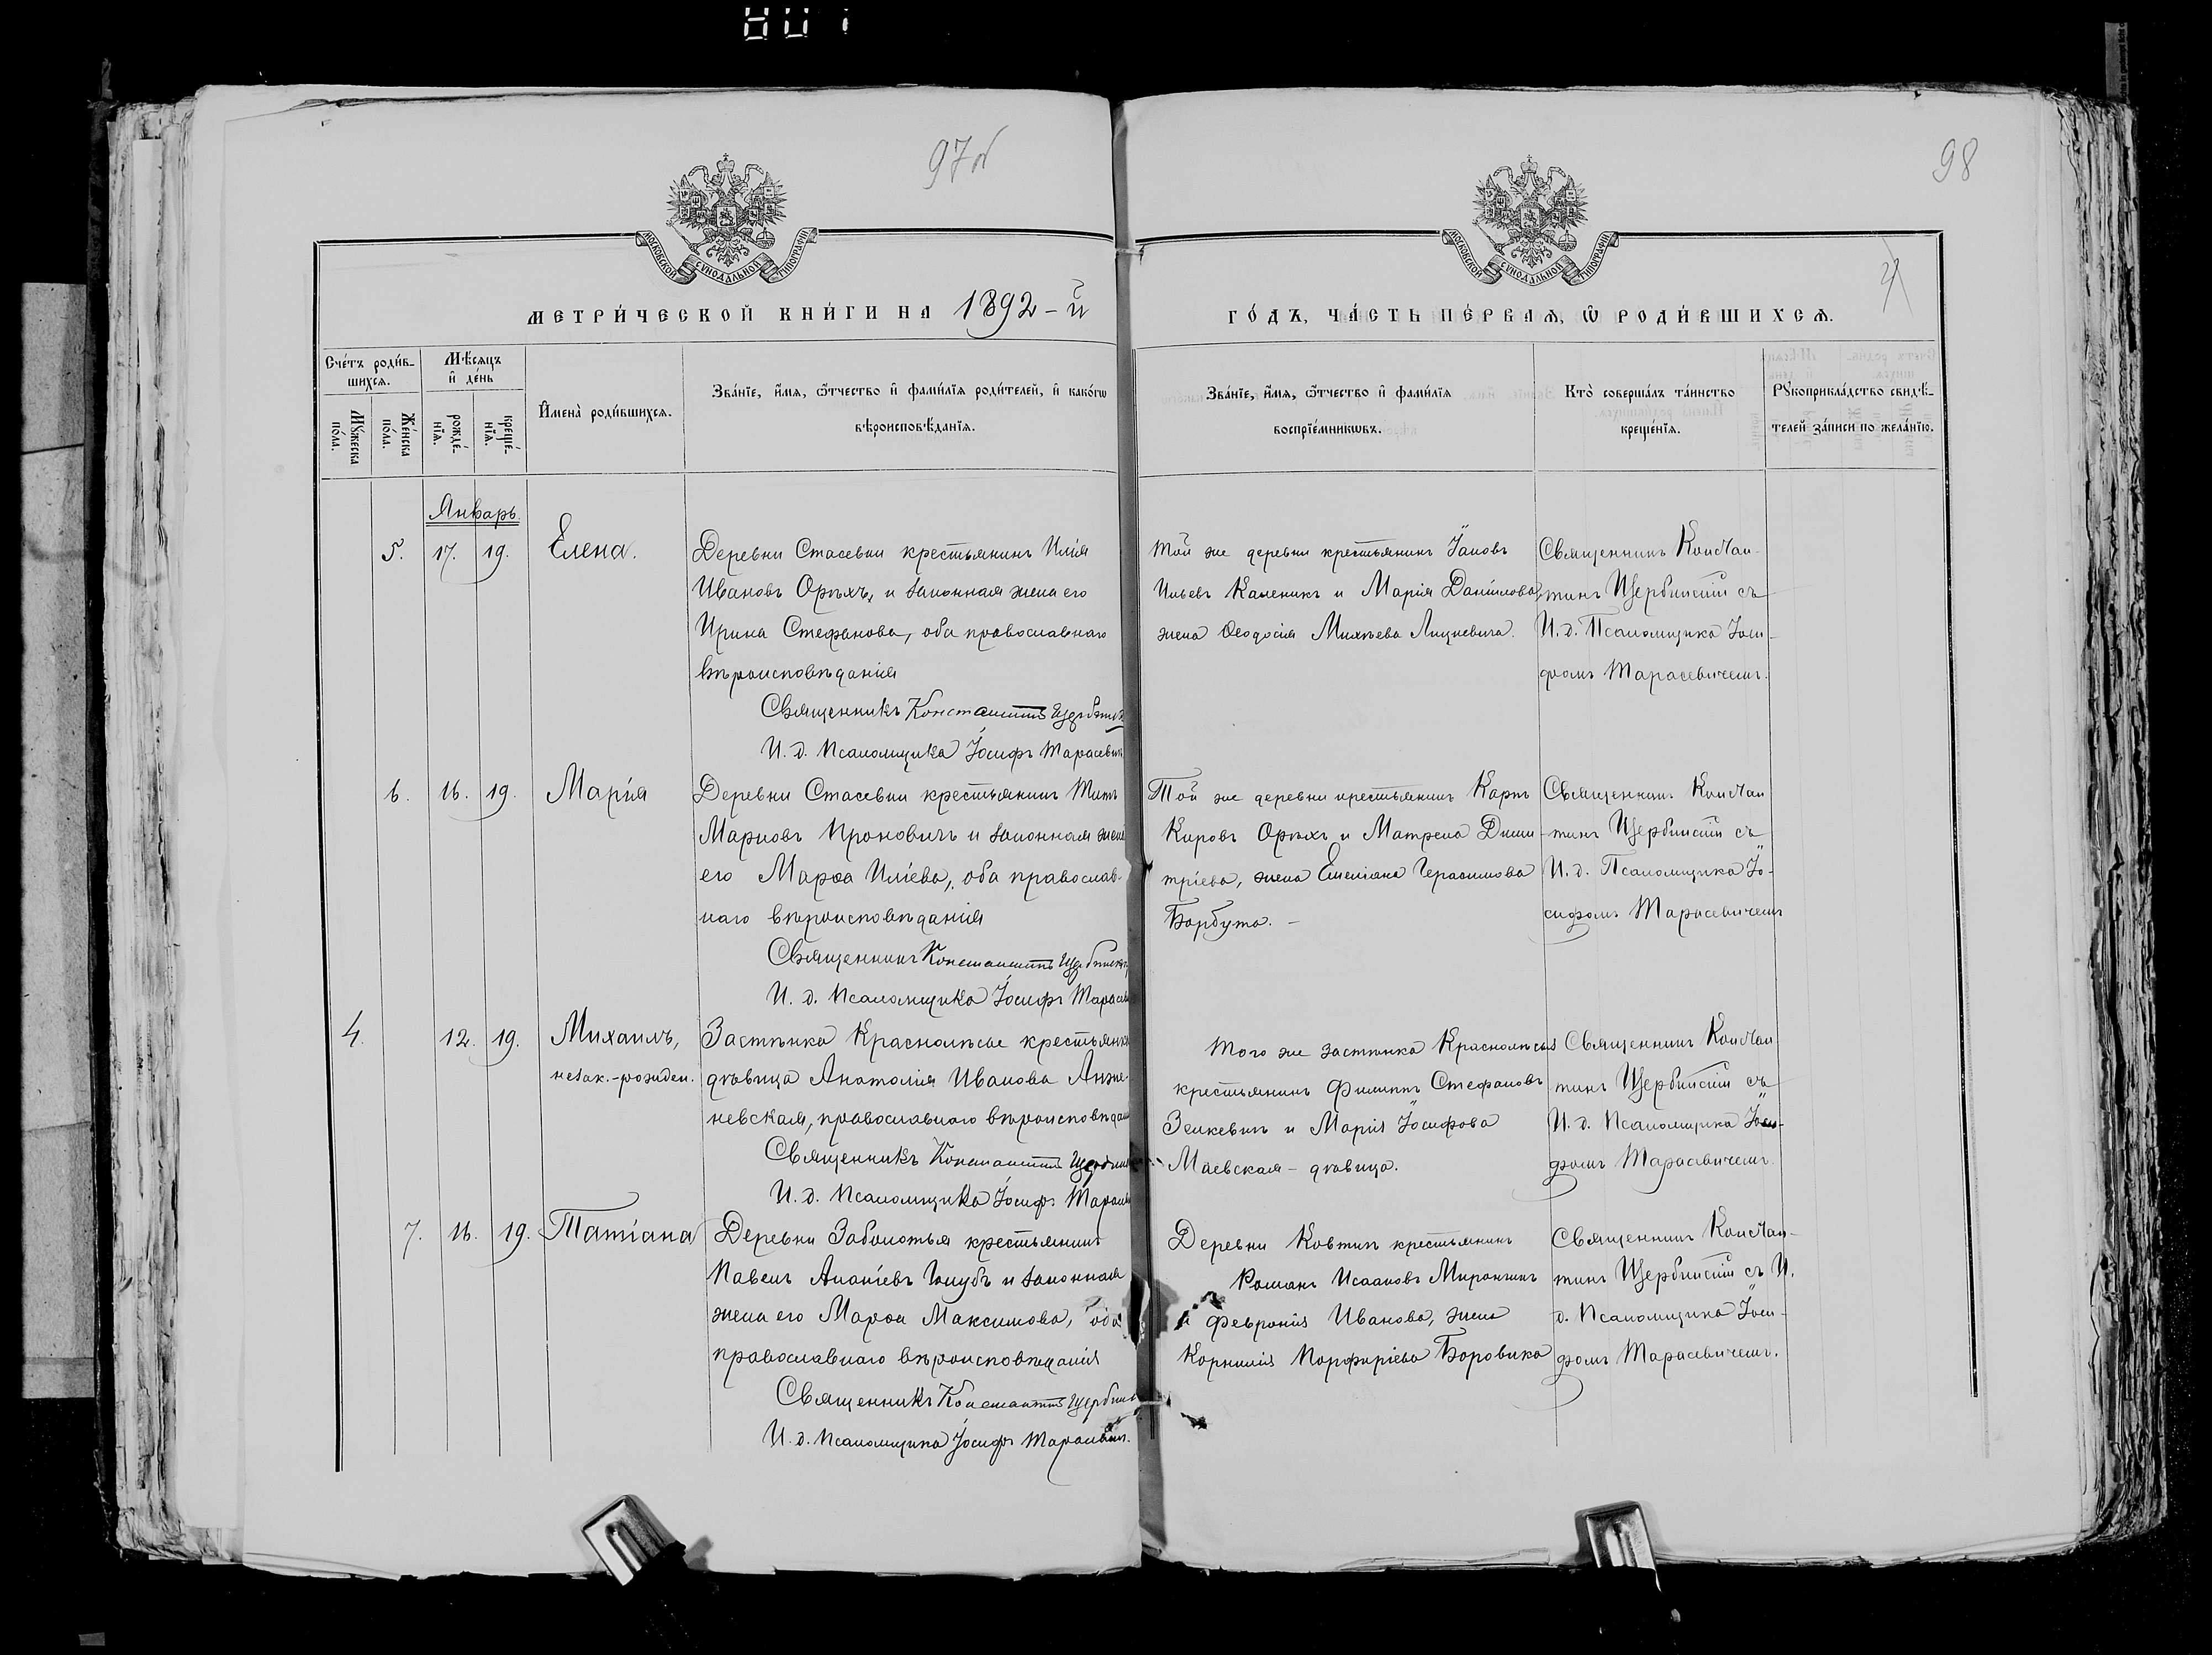 97 об
98
4
МОСКОВСКОЙ СѴНОДАЛЬНОЙ ТИПОГРАФІИ
МОСКОВСКОЙ СѴНОДАЛЬНОЙ ТИПОГРАФІИ
МЕТРИ́ЧЕСКОЙ КНИ́ГИ НА 1892-й
ГО́ДЪ, ЧА́СТЬ ПЕ́РВАѦ, Ѡ҆ РОДИ́ВШИХСѦ.
Сче́тъ роди́в-
шихсѧ.
Мѣ́сѧцъ
и҆ де́нь
Мꙋ́жеска
по́ла.
Же́нска
по́ла.
рожде́-
нїѧ.
креще́-
нїѧ.
И҆мена̀ роди́вшихсѧ.
Зва́нїе, и҆́мѧ, ѻ҆́тчество и҆ фами́лїѧ роди́телей, и҆ како́гѡ
вѣроисповѣ́данїѧ.
Зва́нїе, и҆́мѧ, ѻ҆́тчество и҆ фами́лїѧ
воспрїе́мникѡвъ.
Кто̀ соверша́лъ та́инство
креще́нїѧ.
Рꙋкоприкла́дство свидѣ́-
телей за́писи по жела́нїю.
Январь.
5. 17. 19. Елена.
Деревни Стасевки крестьянинъ Илія
Ивановъ Орѣхъ, и законная жена его
Ирина Стефанова, оба православнаго
вѣроисповѣданія
Священникъ Константинъ
И. д. Псаломщика Іосифъ Тарасевич
Той же деревни крестьянинъ
Ильевъ Каленикъ и Марія Даніилова,
жена Ѳеодосія Михѣева Лицкевича.
Священникъ Констан-
тинъ Щербинскій съ
И. д. Псаломщика Іоси-
фомъ Тарасевичемъ.
6. 16. 19. Марія
Деревни Стасевки крестьянинъ Титъ
Марковъ Проковичъ и законная жена
его Марѳа Иліева, оба православ-
наго вѣроисповѣданія
Священникъ Константинъ
И. д. Псаломщика Іосифъ
Той же деревни крестьянинъ Карпъ
Кировъ Орѣхъ и Матрена Дими-
тріева, жена Емеліана Герасимова
Барбута. –
Священникъ Констан
тинъ Щербинскій съ
И. д. Псаломщика Іо-
сифомъ Тарасевичемъ
4. 12. 19. Михаилъ,
незак.-рожден.
Застѣнка Краснолѣсье крестьянка
дѣвица Анатолія Иванова
православнаго
Священникъ Константинъ
И. д. Псаломщика Іосифъ
Того же застѣнка Краснолѣсья
крестьянинъ Филиппъ Стефановъ
Зенкевичъ и Марія Іосифова
Маевская – дѣвица.
Священникъ Констан
тинъ Щербинскій съ
И. д. Псаломщика Іоси-
фомъ Тарасевичемъ.
7. 16. 19. Татіана
Деревни Заболотья крестьянинъ
Павелъ Ананіевъ Голубъ и законная
жена его Марѳа Максимова, оба
православнаго вѣроисповѣданія
Священникъ Константинъ
И. д. Псаломщика Іосифъ Тарасевич.
Деревни Ковтицъ крестьянинъ
Романъ Исааковъ Мирончикъ
и Февронія Иванова, жена
Корнилія Порфиріева Боровика
Священникъ Констан-
тинъ Щербинскій съ И.
д. Псаломщика Іоси-
фомъ Тарасевичемъ.